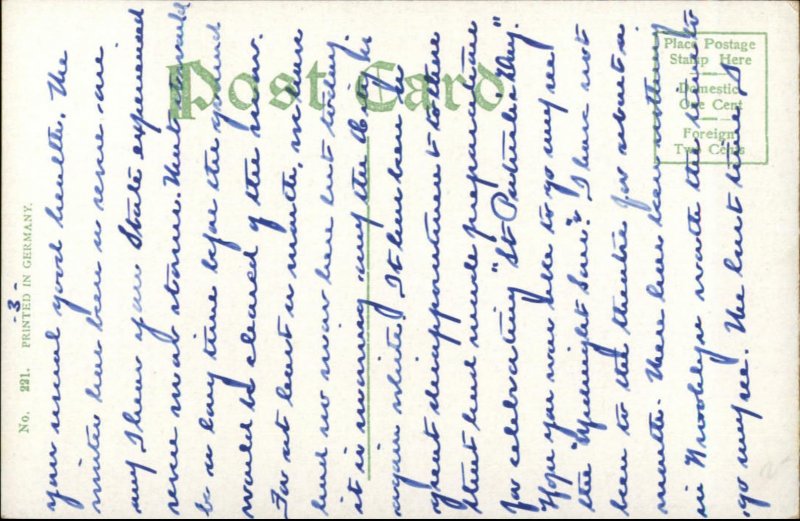 Post Card
Place Postage
Stamp Here
Domestic
One Cent
Foreign
Two Cents
No. 221. PRINTED IN GERMANY.
-3-
your usual good health. The
winter has been a severe one.
any I hear your State experienced
severe most storms. That it would
be a long time before the ground
would be cleared of the snow.
For at least a month, we have
had no snow here but today
it is snowing and the City is
again white. It has been a
great disappointment to those
that had made preparations
for celebrating "St Patricks Day."
Hope you were able to go may see
the "Midnight Sons." I have not
been to the theatre for about a
month. There has been nothing
in Brooklyn worth the visit to
go may see. The last time I